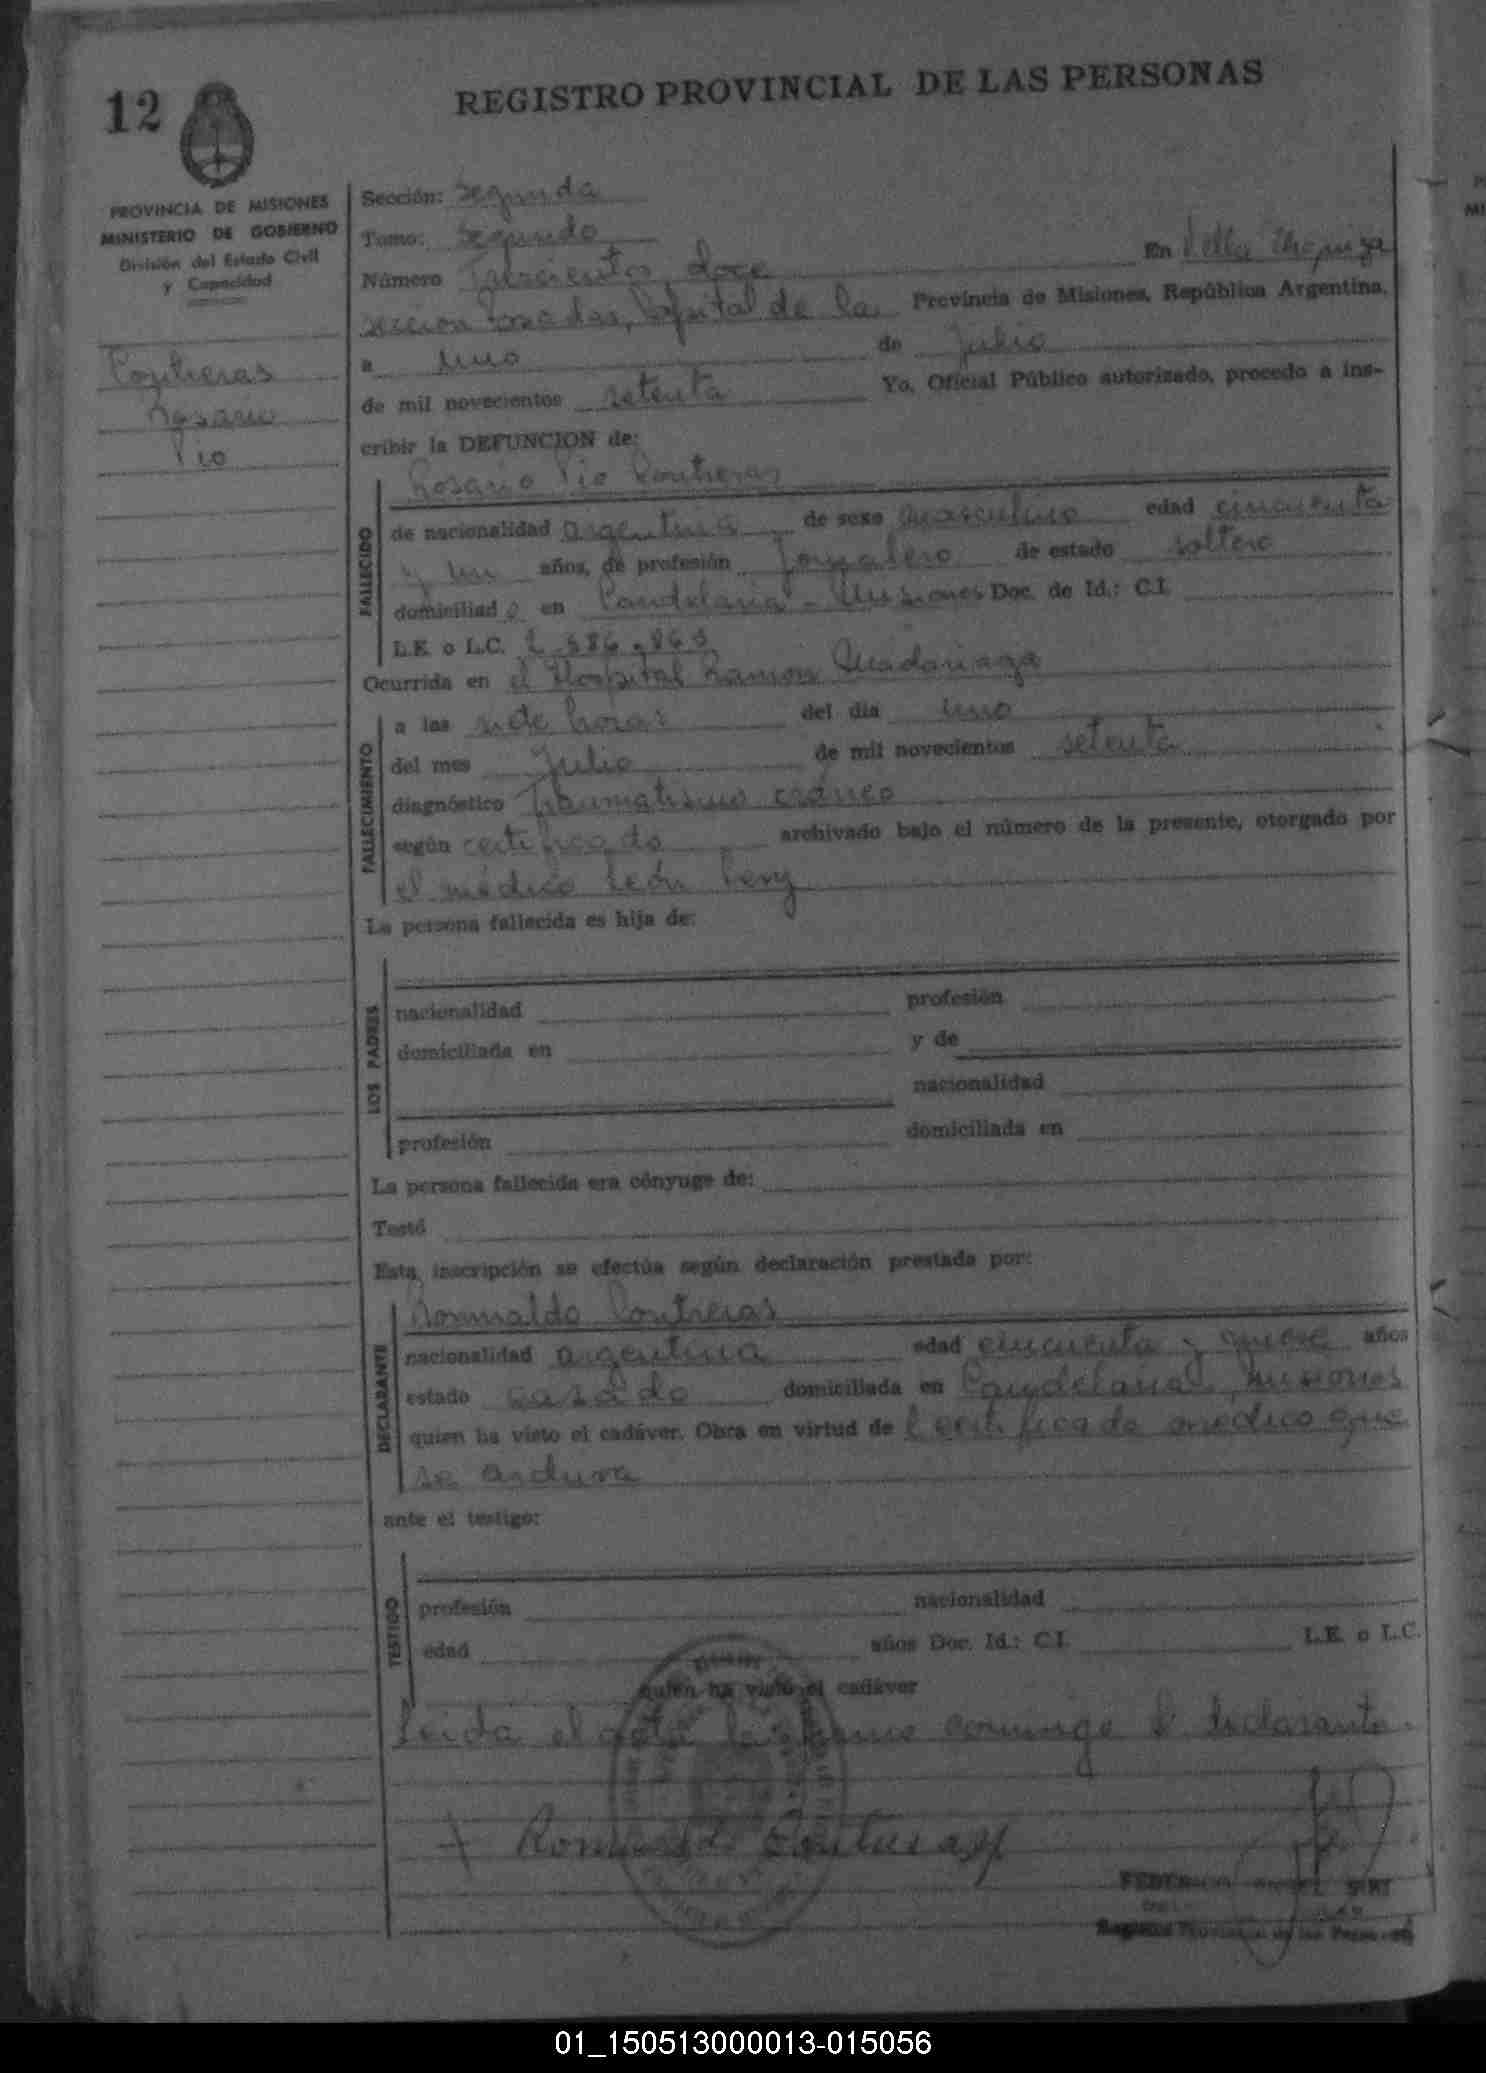 12
REGISTRO PROVINCIAL DE LAS PERSONAS
PROVINCIA DE MISIONES
MINISTERIO DE GOBIERNO
División del Estado Civil
y Capacidad
Contreras
Rosario
Pio
Sección: Segunda
Tomo: Segundo
En Villa
Número Trescientos doce
seccion Posadas, Hospital de la Provincia de Misiones, República Argentina,
a uno de Julio
de mil novecientos setenta Yo, Oficial Público autorizado, procedo a ins-
cribir la DEFUNCION de:
Rosario Pio Contreras
FALLECIDO
de nacionalidad argentina de sexo masculino edad cincuenta
y un años, de profesión Jornalero de estado soltero
domiciliad o en Candelaria - Misiones Doc. de Id.: C.I.
L.E. o L.C.
Ocurrida en el Hospital Ramón Madariaga
FALLECIMIENTO
a las siete horas del día uno
del mes Julio de mil novecientos setenta
diagnóstico Traumatismo craneo
según certificado archivado bajo el número de la presente, otorgado por
el médico León
La persona fallecida es hija de:
LOS PADRES
nacionalidad profesión
domiciliada en y de
nacionalidad
profesión domiciliada en
La persona fallecida era cónyuge de:
Testó
Esta inscripción se efectúa según declaración prestada por:
DECLARANTE
Romualdo Contreras
nacionalidad argentina edad cincuenta y nueve años
estado casado domiciliada en Candelaria, Misiones
quien ha visto el cadáver. Obra en virtud de Certificado médico que
se archiva
ante el testigo:
TESTIGO
profesión nacionalidad
edad años Doc. Id.: C.I. L.E. o L.C.
quien ha visto el cadáver
Leida el acta la firma conmigo el declarante.
Romualdo Contreras
FEDERICO
Registro Provincial de las Personas
01_150513000013-015056